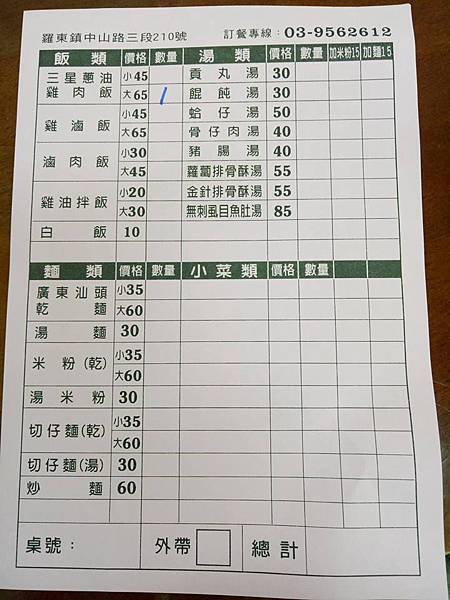 羅東鎮中山路三段210號 訂餐專線：03-9562612
飯類 價格 數量 湯類 價格 數量 加米粉15 加麵15
三星蔥油雞肉飯 小45 貢丸湯 30
大65 1 餛飩湯 30
雞滷飯 小45 蛤仔湯 50
大65 骨仔肉湯 40
滷肉飯 小30 豬腸湯 40
大45 蘿蔔排骨酥湯 55
雞油拌飯 小20 金針排骨酥湯 55
大30 無刺虱目魚肚湯 85
白飯 10
麵類 價格 數量 小菜類 價格 數量
廣東汕頭乾麵 小35
大60
湯麵 30
米粉(乾) 小35
大60
湯米粉 30
切仔麵(乾) 小35
大60
切仔麵(湯) 30
炒麵 60
桌號： 外帶 總計